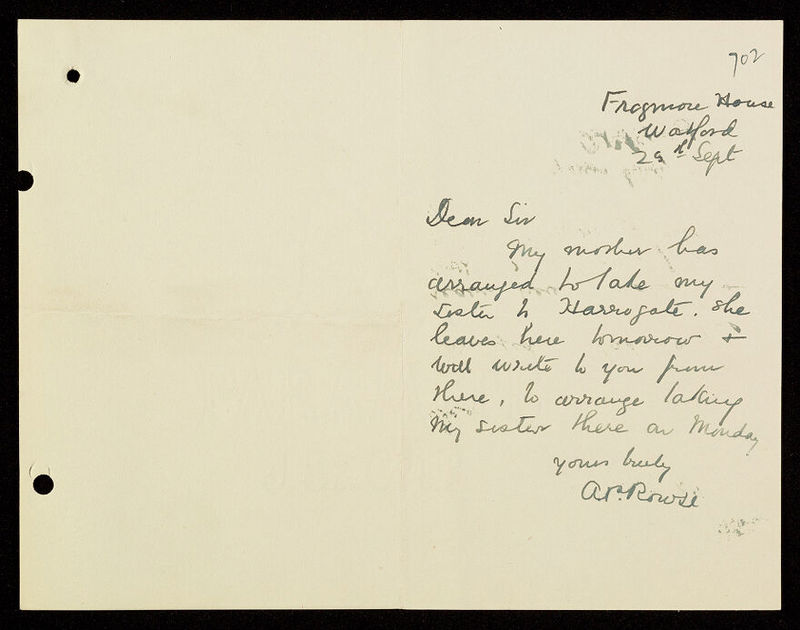 702
Frogmore House
Watford
29th Sept
Dear Sir
My mother has
arranged to take my
sister to Harrogate. She
leaves here tomorrow +
will write to you from
there, to arrange taking
my sister there on Monday
yours truly
Rowse